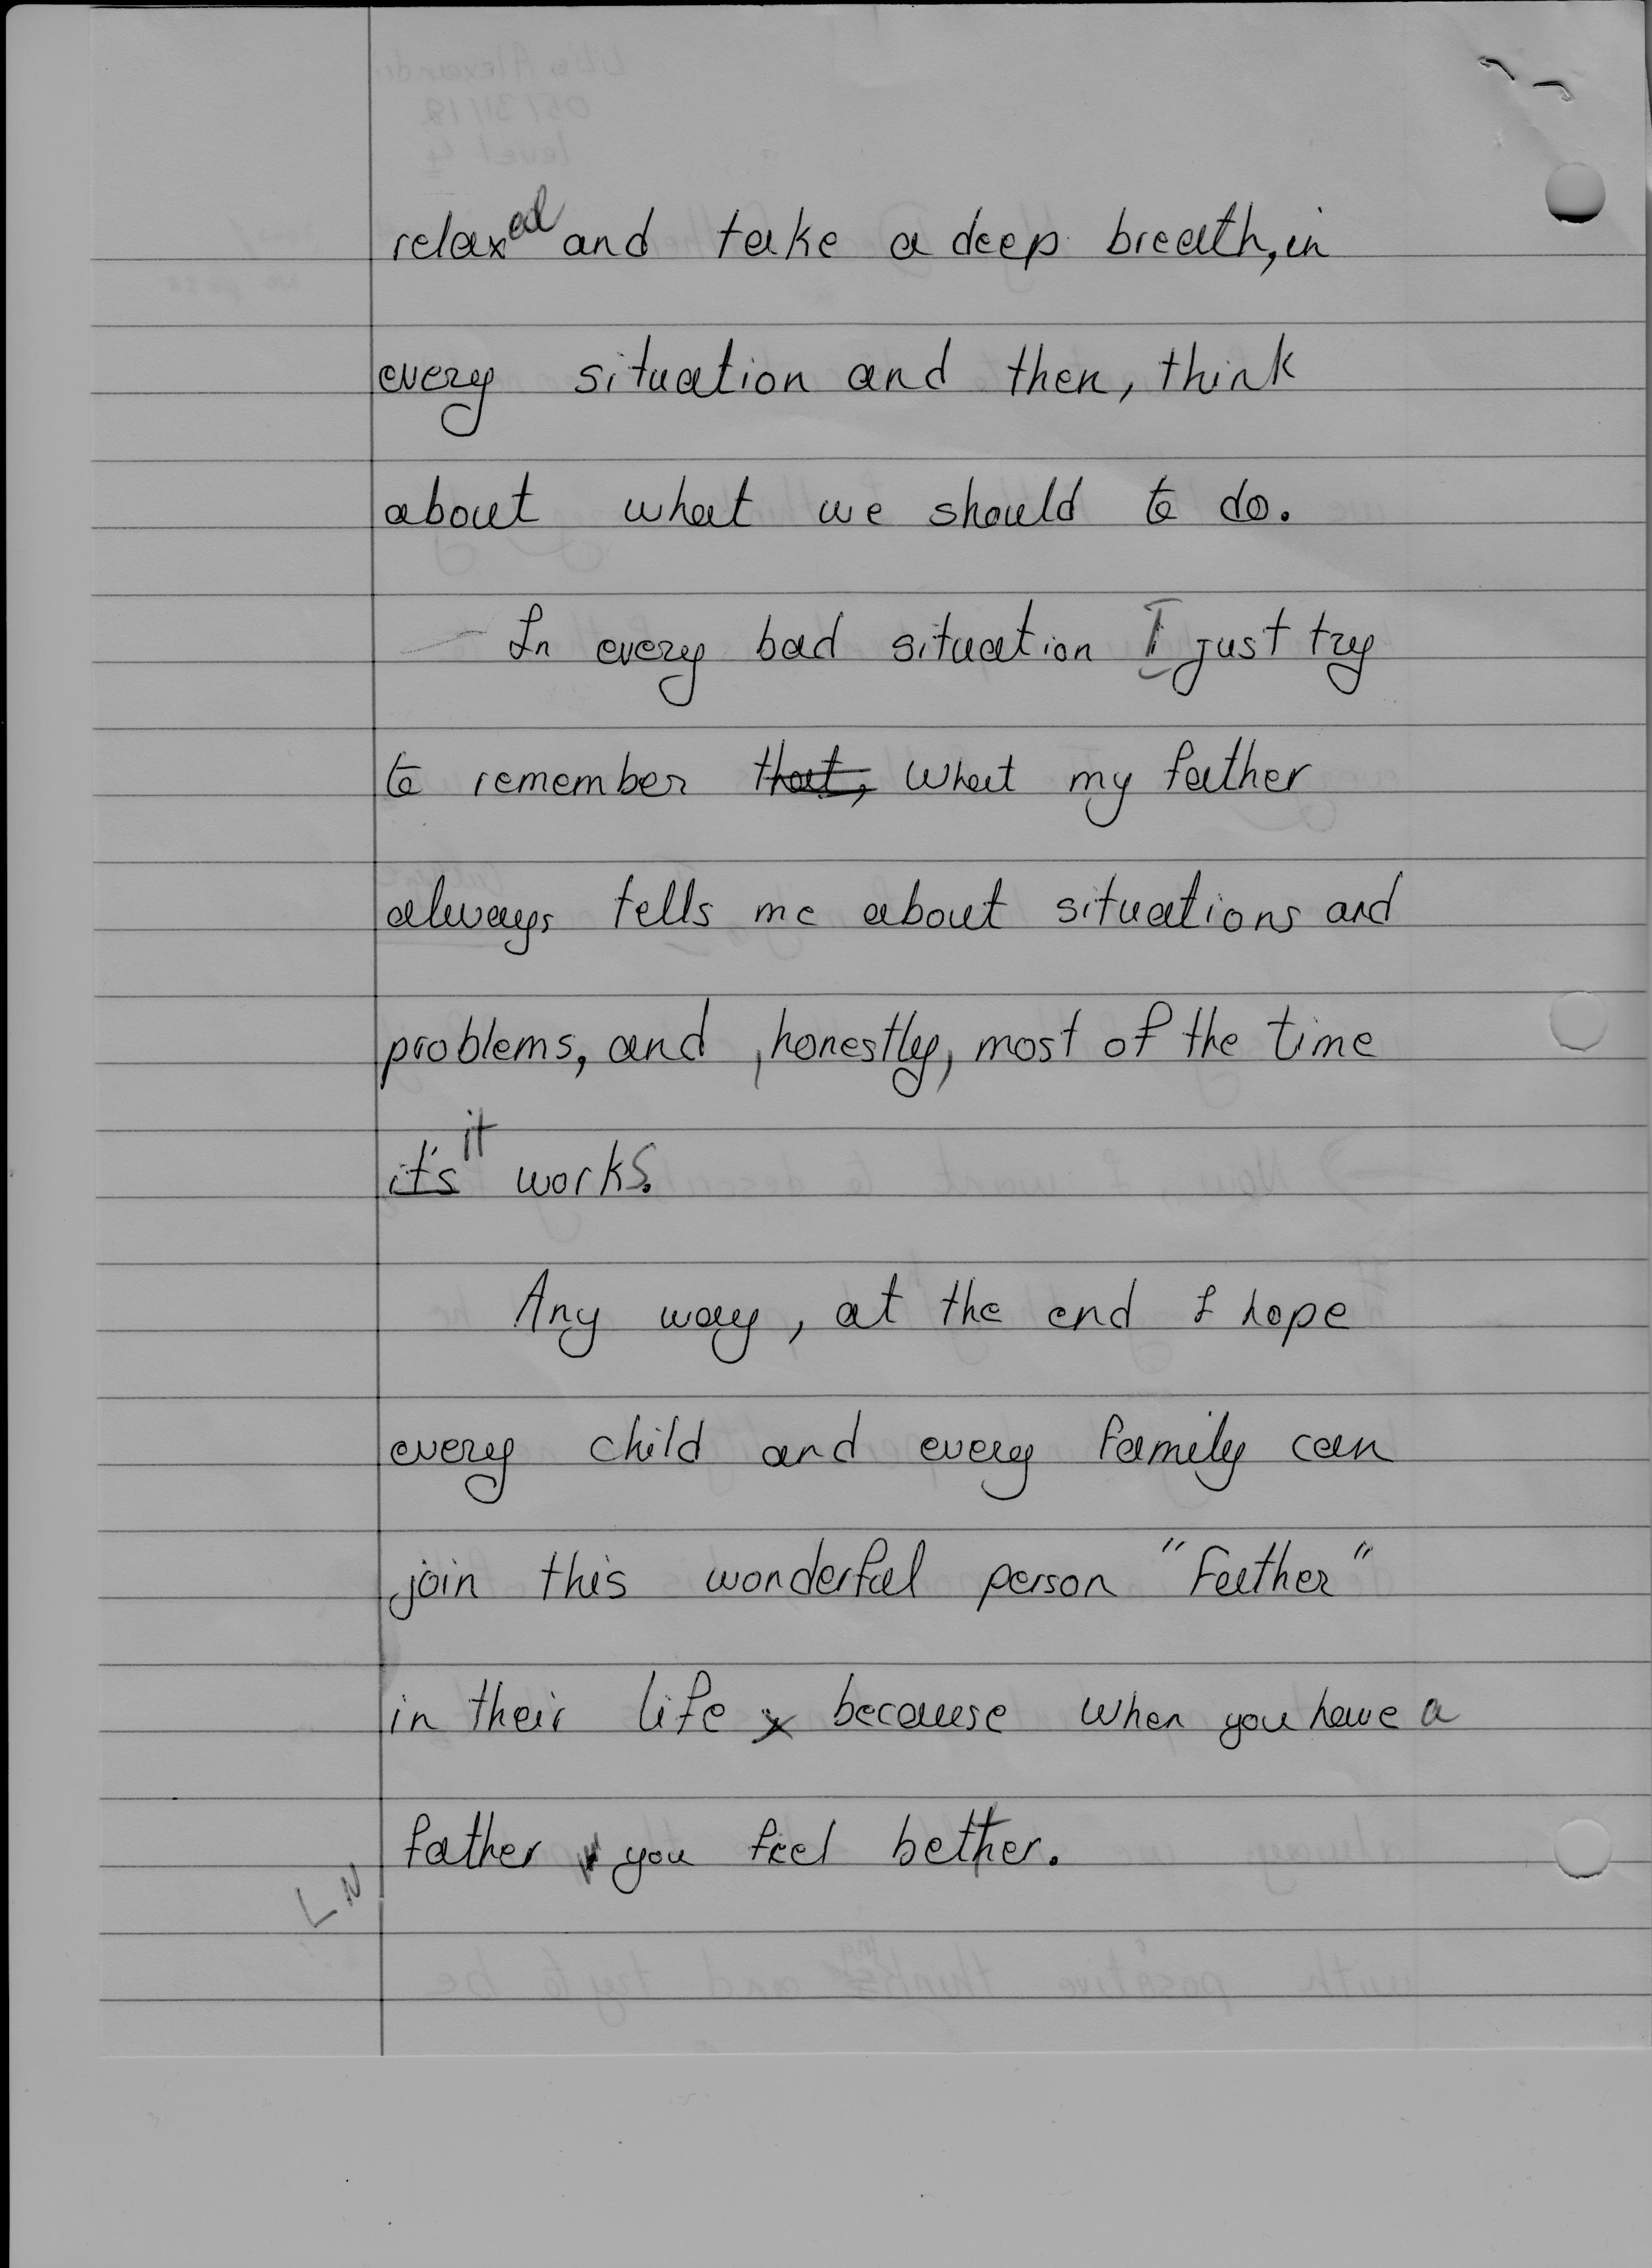 relaxed and take a deep breath, in
every situation and then, think
about what we should to do.
In every bad situation I just try
to remember that, what my father
always tells me about situations and
problems, and, honestly, most of the time
it's it works.
Any way, at the end I hope
every child and every family can
join this wonderful person "Father"
in their life because when you have a
father you feel bether.
LN